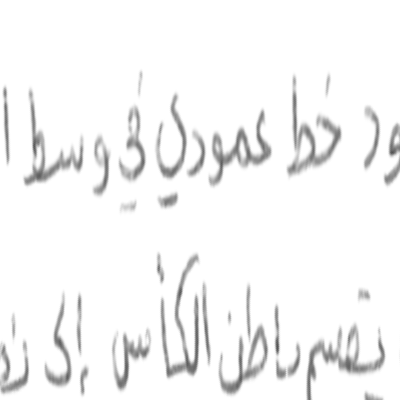 خط عمودي في وسط
يقسم باطن الكأس إلى